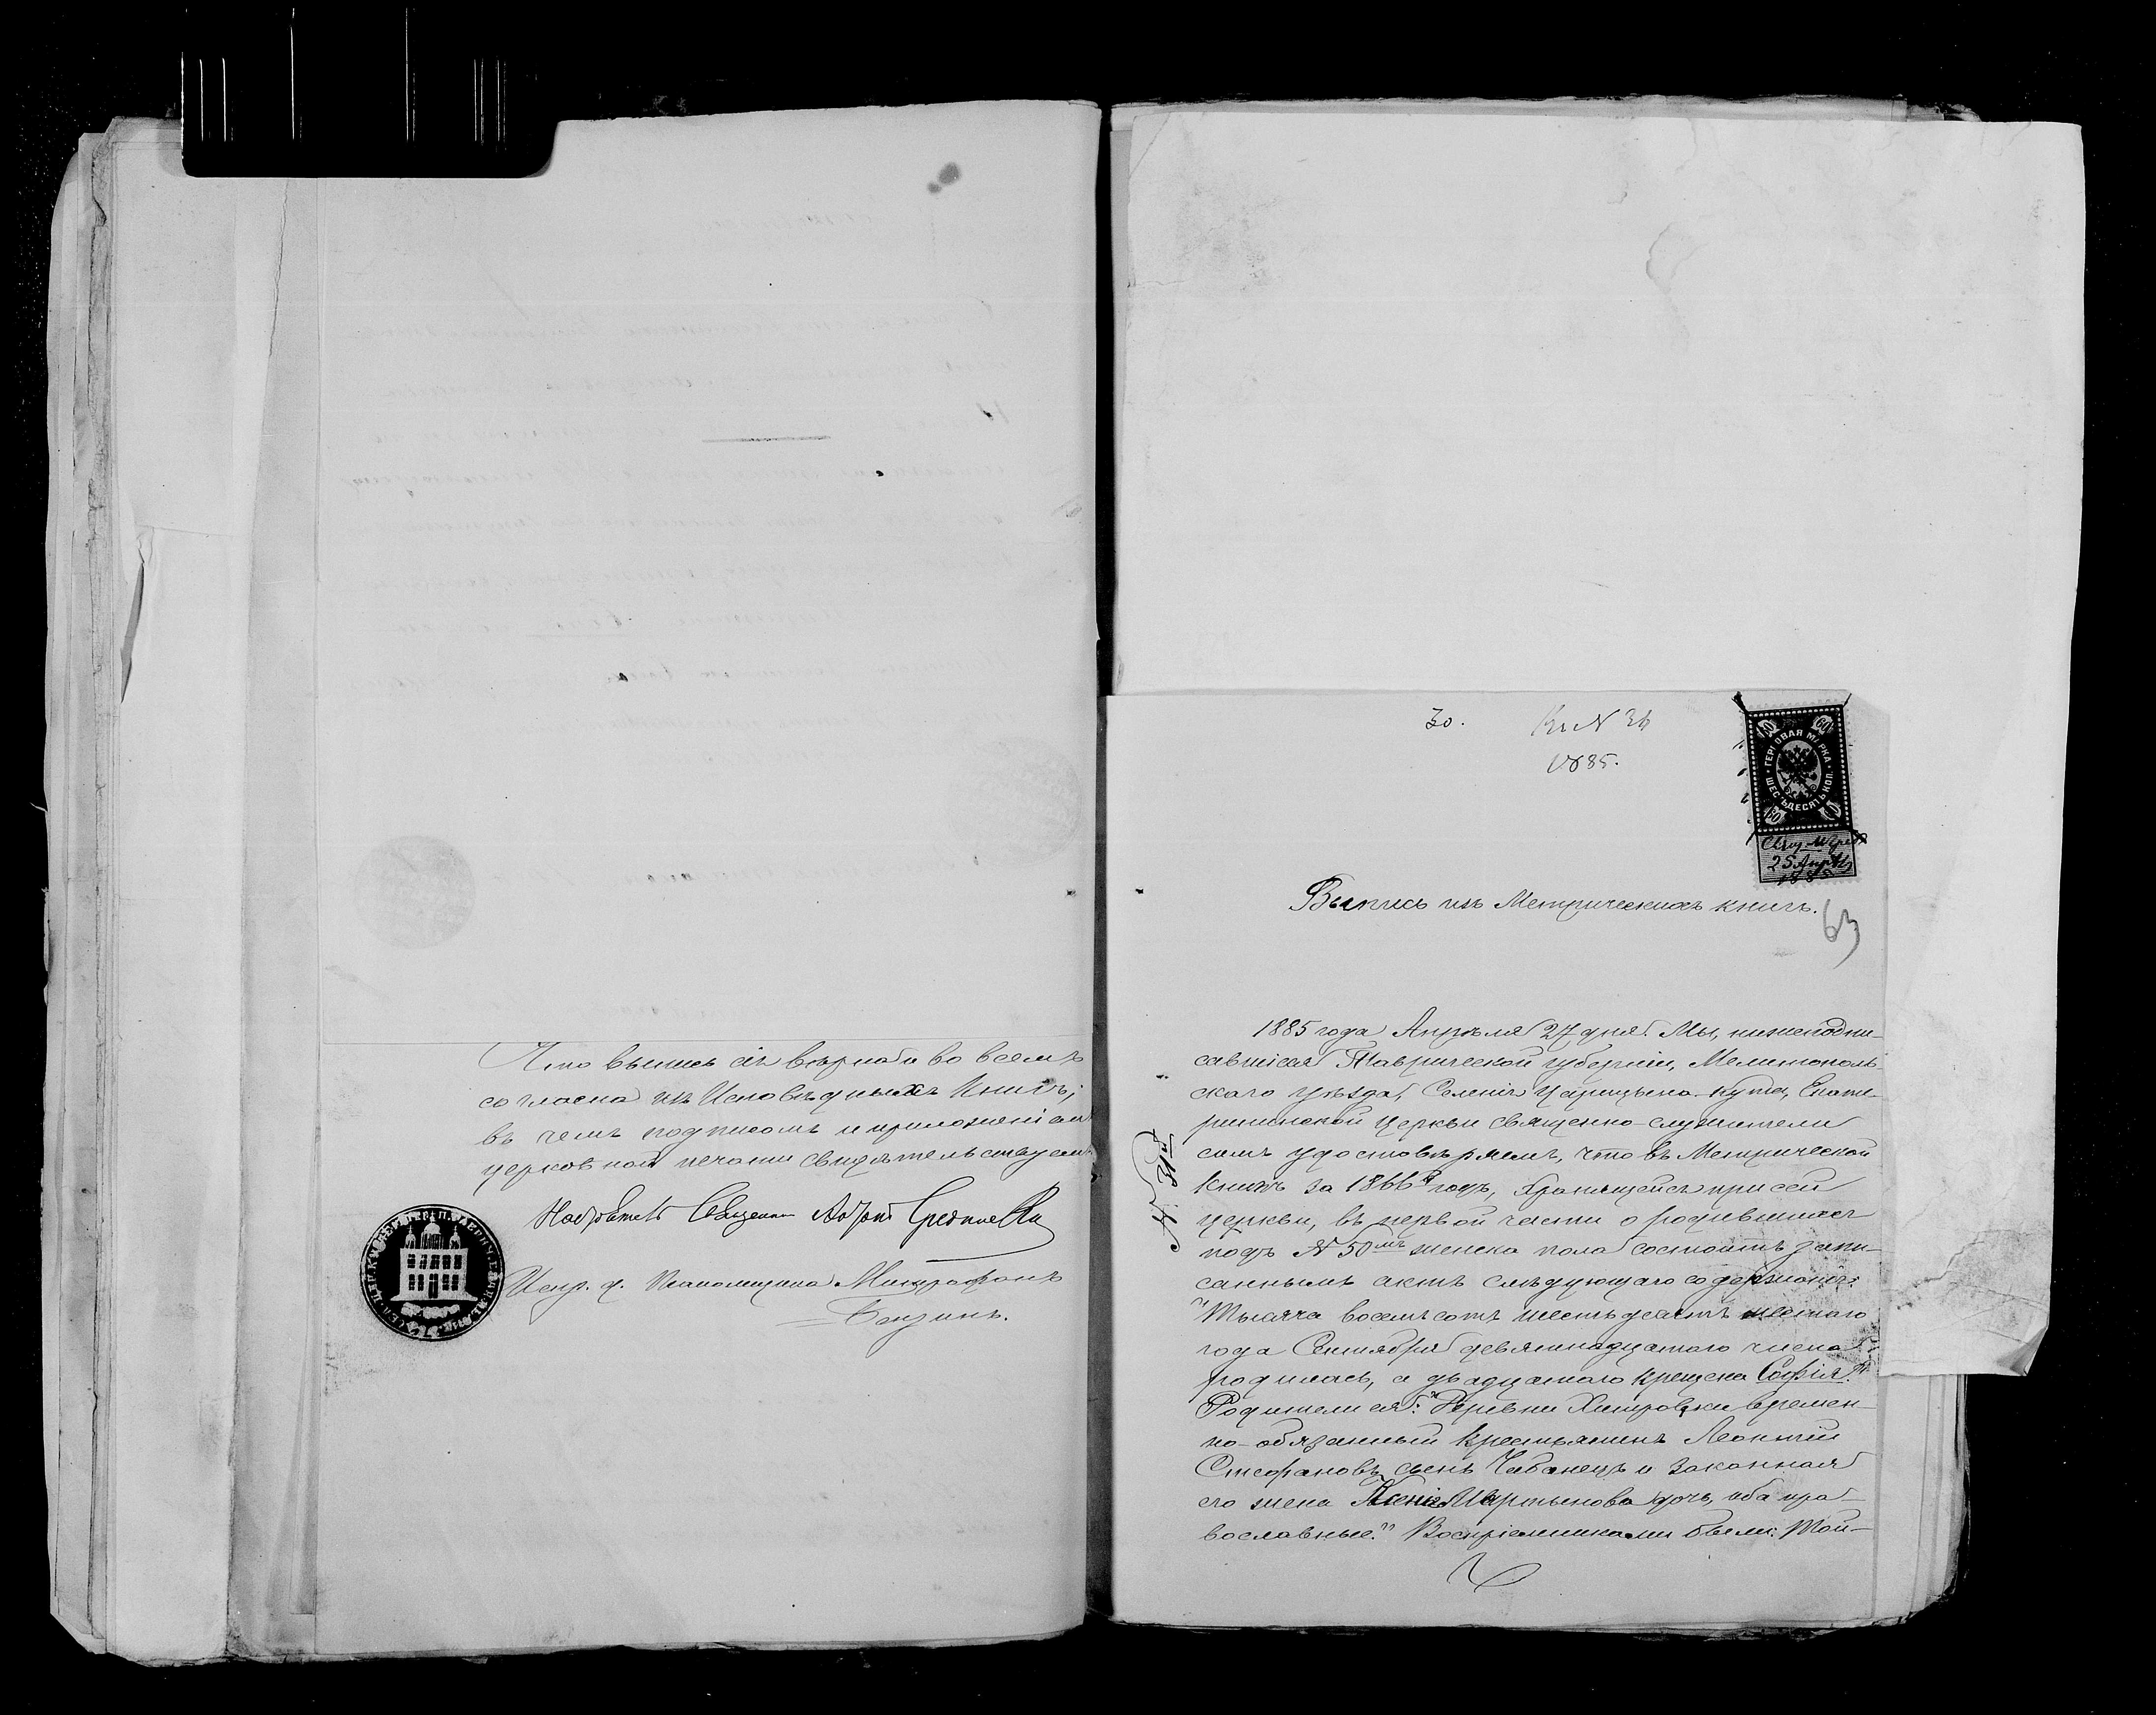 Что выпись сія вѣрна и во всемъ
согласна изъ Исповѣдныхъ Книгъ,
въ чемъ подписомъ и приложеніемъ
церковной печати свидѣтельствуемъ.
Настоятель Священн
Испр. д. Псаломщика Митрофанъ
30. Къ N 36
1885.
ГЕРБОВАЯ МАРКА
ШЕСТЬДЕСЯТЪ КОП.
60 60
25 Апрѣля
1885
Выпись изъ Метрическихъ книгъ.
63
1885 года Апрѣля 27 дня. Мы, нижеподпи-
савшіеся Таврической губерніи, Мелитополь-
скаго уѣзда, Селенія Царицына-Кута, Екате-
рининской Церкви священно-служители
симъ удостовѣряемъ, что въ Метрической
Книгѣ за 1866й годъ, хранящейся при сей
церкви, въ первой части о родившихся
подъ № 50мъ женска пола состоитъ запи-
саннымъ актъ слѣдующаго содержанія:
"Тысяча восемьсотъ шестьдесятъ шестаго
года Сентября девятнадцатаго числа
родилась, а двадцатаго крещена Софія."
Родители ея: "Деревни Хитровки времен-
но-обязанный крестьянинъ Леонтій
Стефановъ сынъ Чабанецъ и законная
его жена Ксенія Мартынова дочь, оба пра-
вославные." Воспріемниками были: Той-